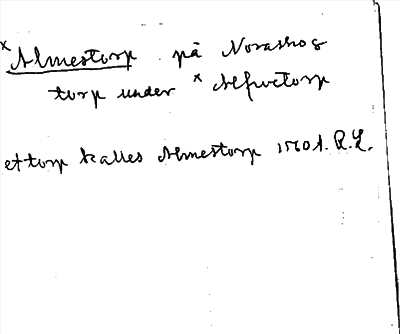 x Almestorp på Noraskog
torp under x Alfvetorp
et torp kalles Almestorp 1560 A. R. L.